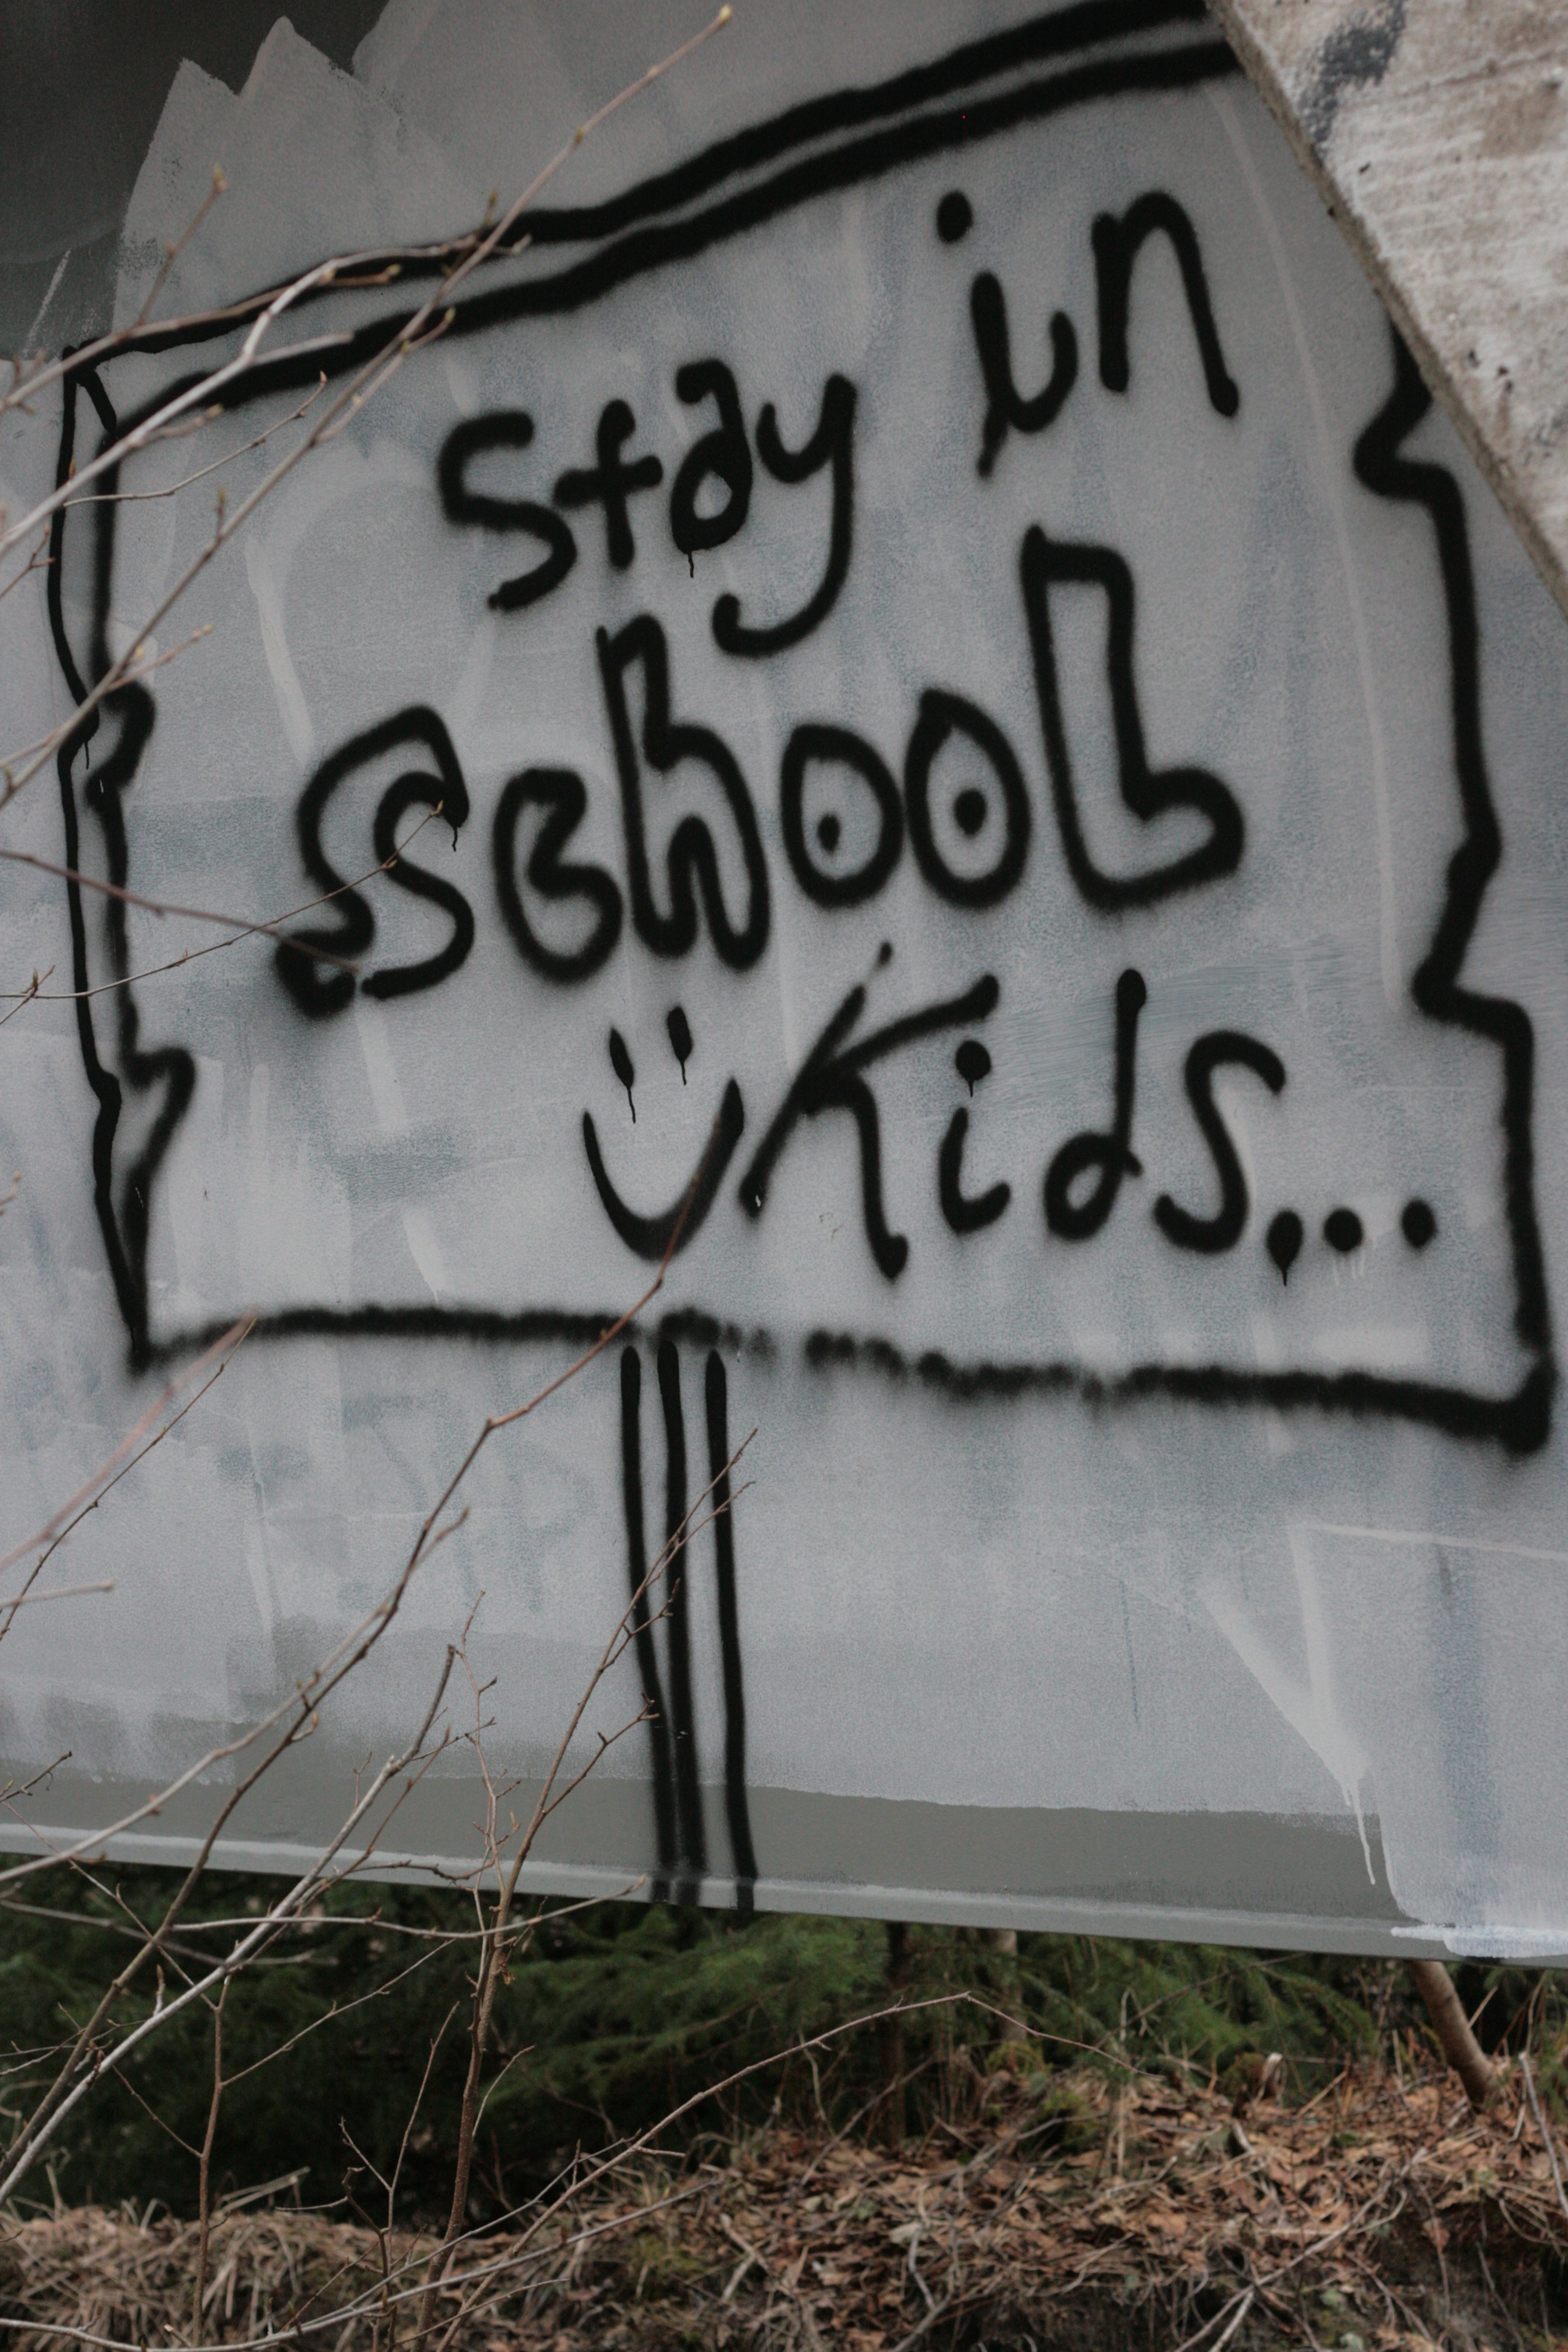 Stay in
School
Kids...